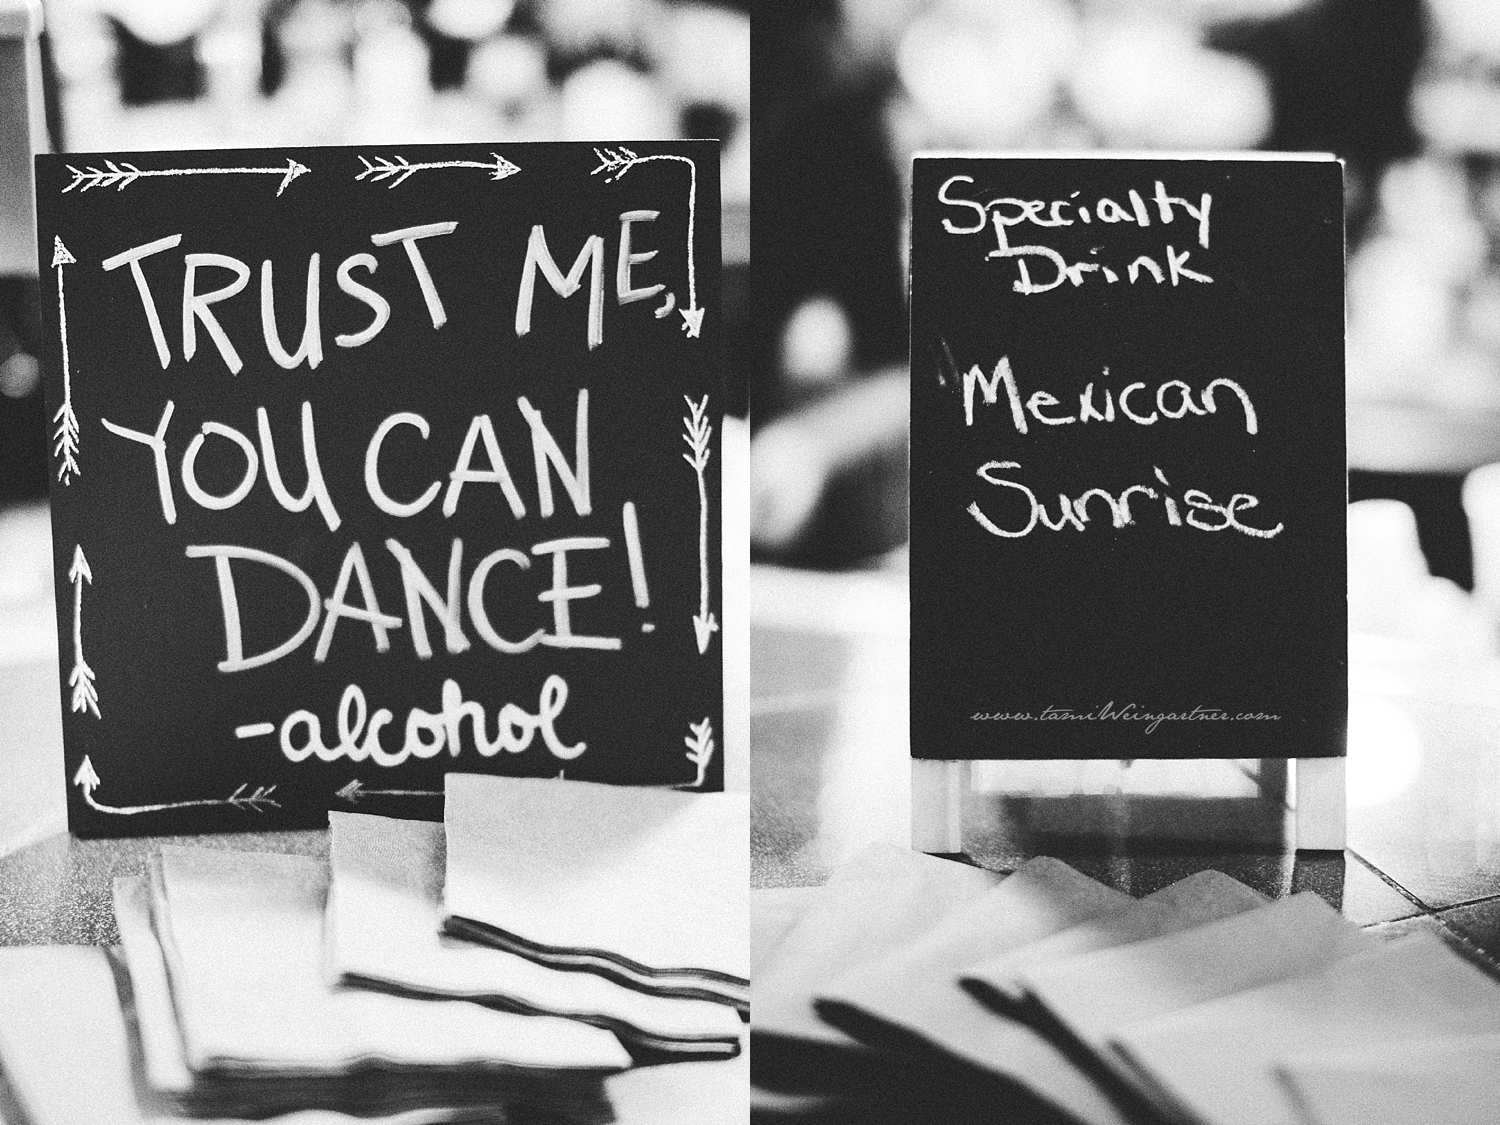 TRUST ME,
YOU CAN
DANCE!
-alcohol
Specialty
Drink
Mexican
Sunrise
www.tamiWeingartner.com